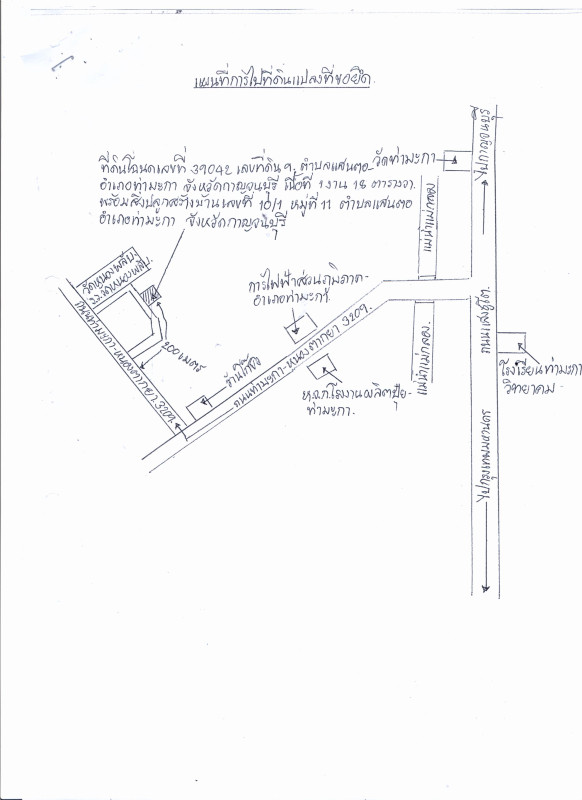 แผนที่การไปที่ดินแปลงที่ขอยึด.
ที่ดินโฉนดเลขที่ 39042 เลขที่ดิน ๆ, ตำบลแสนตอ
อำเภอท่ามะกา จังหวัดกาญจนบุรี เนื้อที่ 1 งาน 18 ตารางวา
พร้อมสิ่งปลูกสร้างบ้านเลขที่ 10/1 หมู่ที่ 11 ตำบลแสนตอ
อำเภอท่ามะกา จังหวัดกาญจนบุรี
วัดท่ามะกา
ไปกาญจนบุรี
แม่น้ำแม่กลอง
วัดหนองพลับ.
รร.วัดหนองพลับ.
การไฟฟ้าส่วนภูมิภาค-
อำเภอท่ามะกา.
200 เมตร
ถนนท่ามะกา-หนองตากยา 3209.
ร้านโก๋
ถนนท่ามะกา-หนองตากยา 3209.
ห.จ.ก.โรงงานผลิตปุ๋ย-
ท่ามะกา.
แม่น้ำแม่กลอง.
ถนนแสงชูโต.
โรงเรียนท่ามะกา
วิทยาคม
ไปกรุงเทพมหานคร